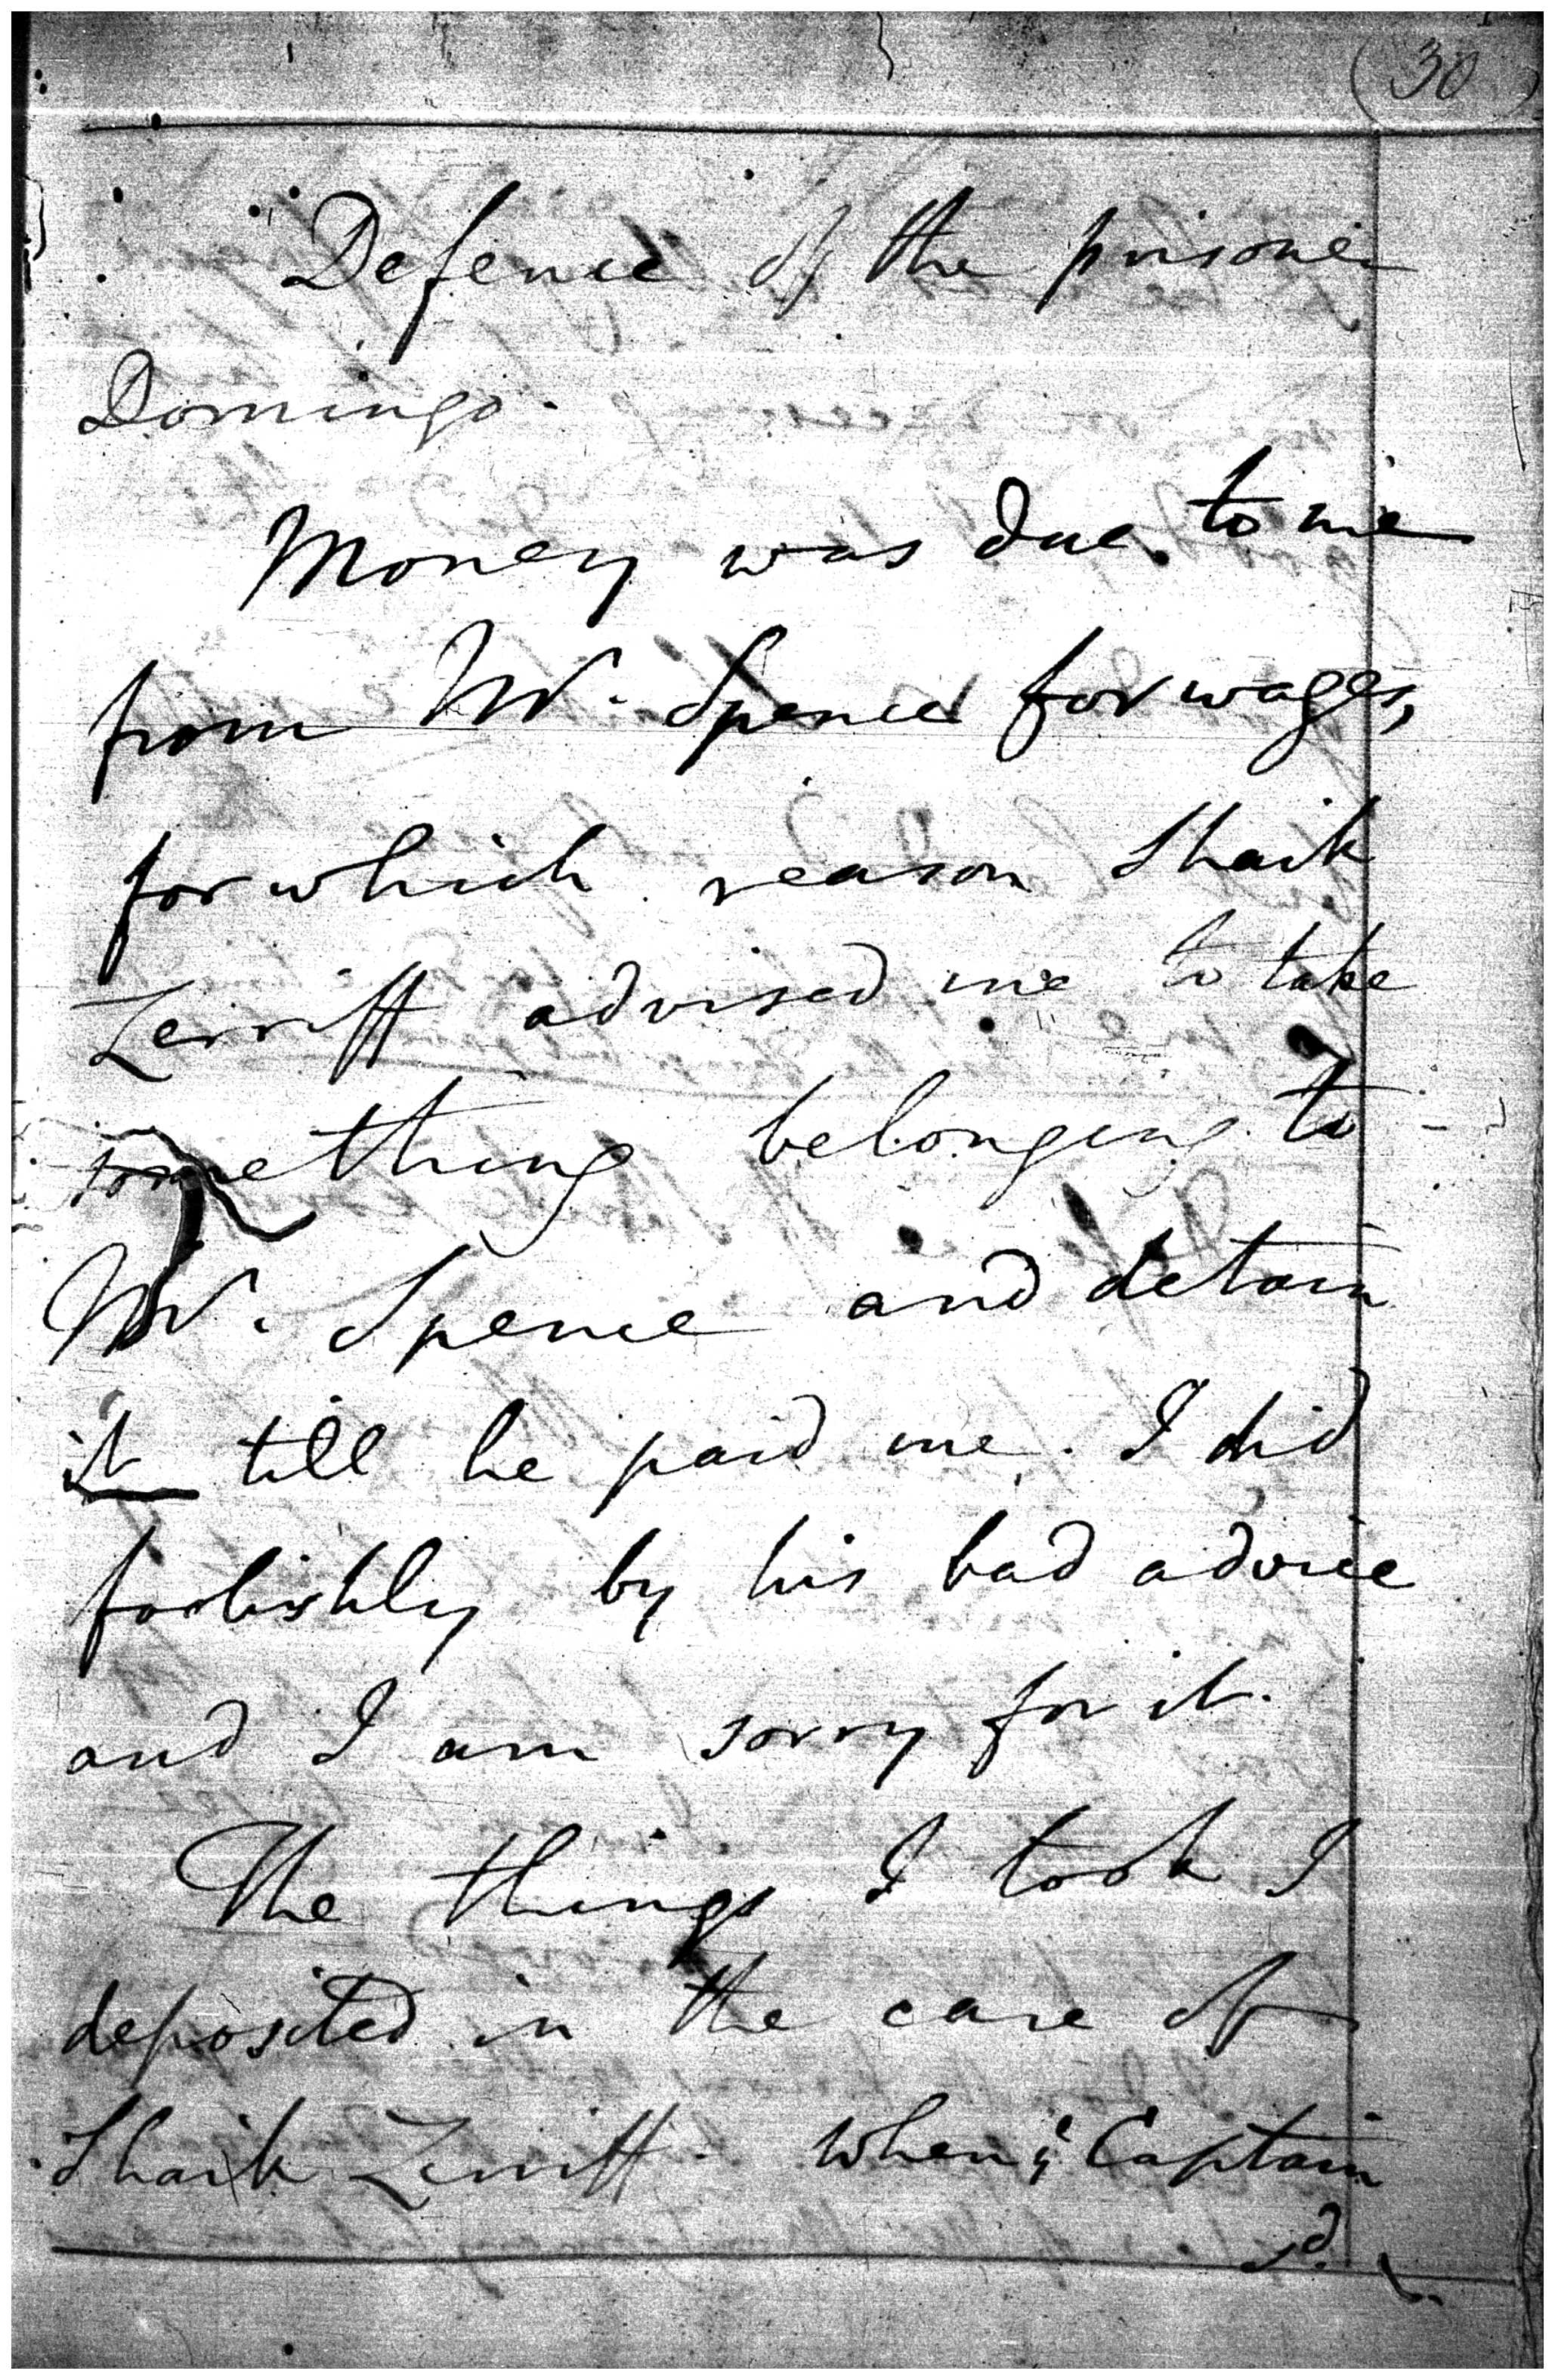 (30)
Defence of the prisoner
Domingo.
Money was due to me
from Mr. Spence for wages,
for which reason Shaik
Zerriff advised me to take
something belonging to
Mr. Spence and detain
it till he paid me. I did
foolishly by his bad advice
and I am sorry for it.
The things I took I
deposited in the care of
Shaik Zerriff. When Captain
sd.